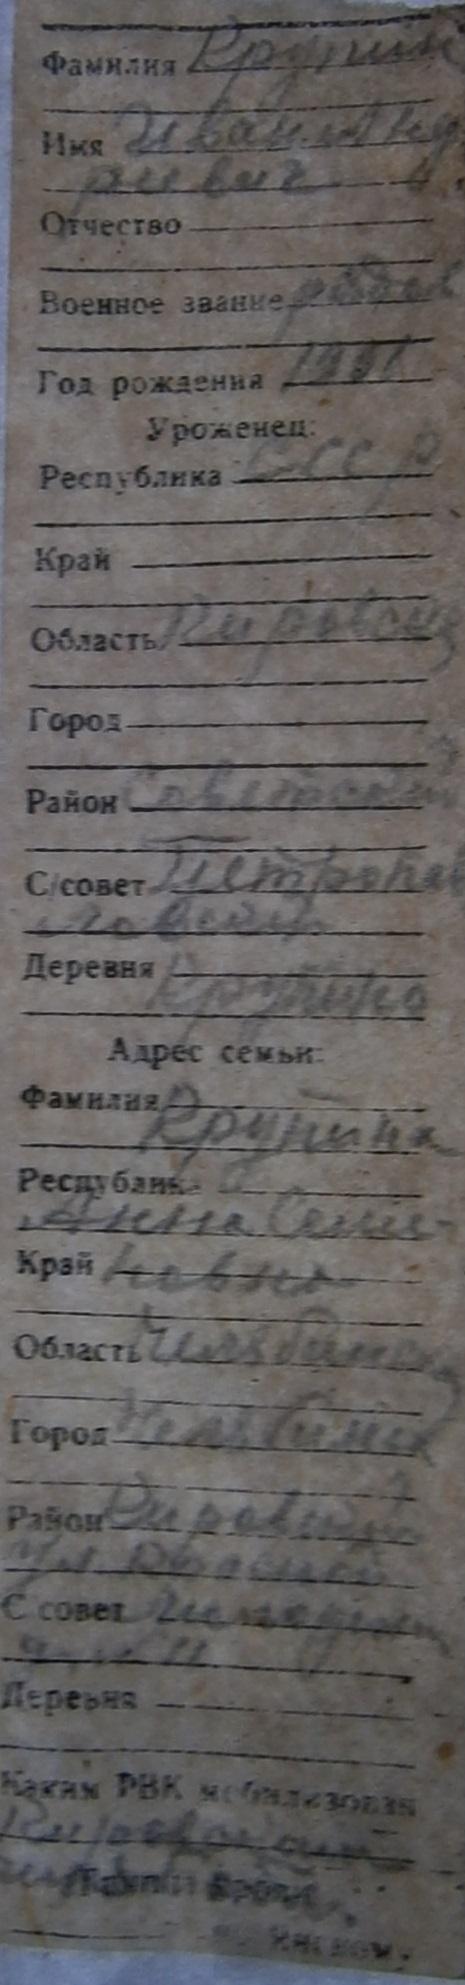 Фамилия Крупин
Имя Иван Анд
риевич
Отчество
Военное звание рядов
Год рождения
Уроженец:
Республика СССР
Край
Область Кировск
Город
Район Советский
С/совет Петропав
ловский
Деревня
Крупино
Адрес семьи:
Фамилия
Крупина
Республика
Анна Семе-
Край новна
Область Челябинск
Город Челябинск
Район Кировский
ул Красной
С совет
Деревня
Каким РВК мобилизован
Кировским